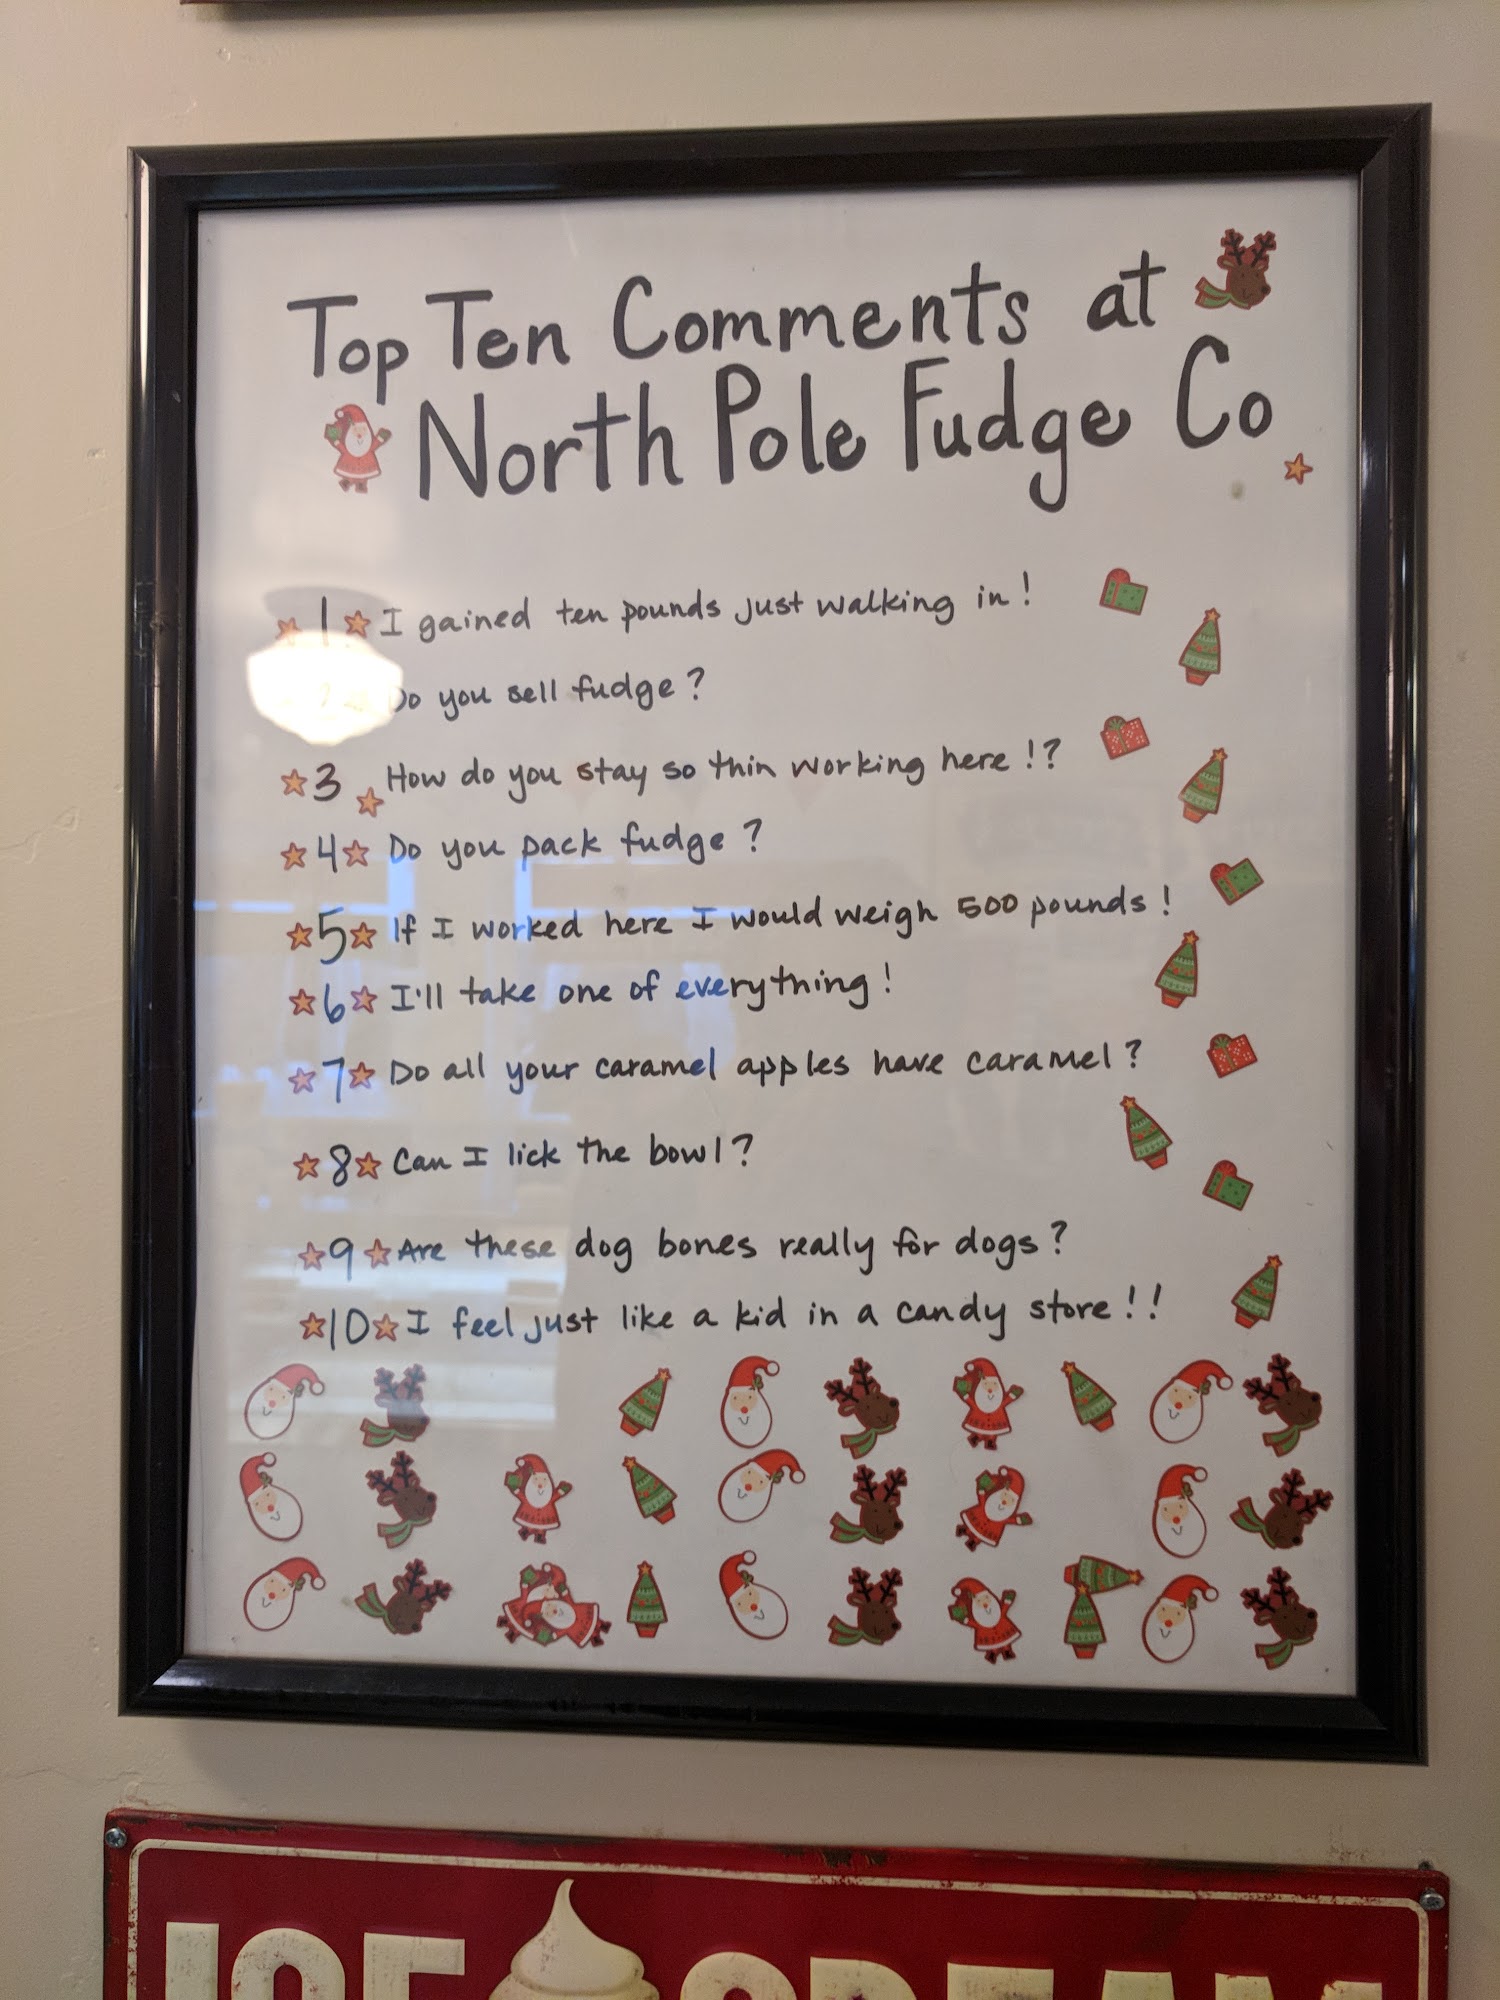 Top Ten Comments at
North Pole Fudge Co
1 I gained ten pounds just walking in!
2 Do you sell fudge?
3 How do you stay so thin working here!?
4 Do you pack fudge?
5 If I worked here I would weigh 500 pounds!
6 I'll take one of everything!
7 Do all your caramel apples have caramel?
8 Can I lick the bowl?
9 Are these dog bones really for dogs?
10 I feel just like a kid in a candy store!!
ICE CREAM